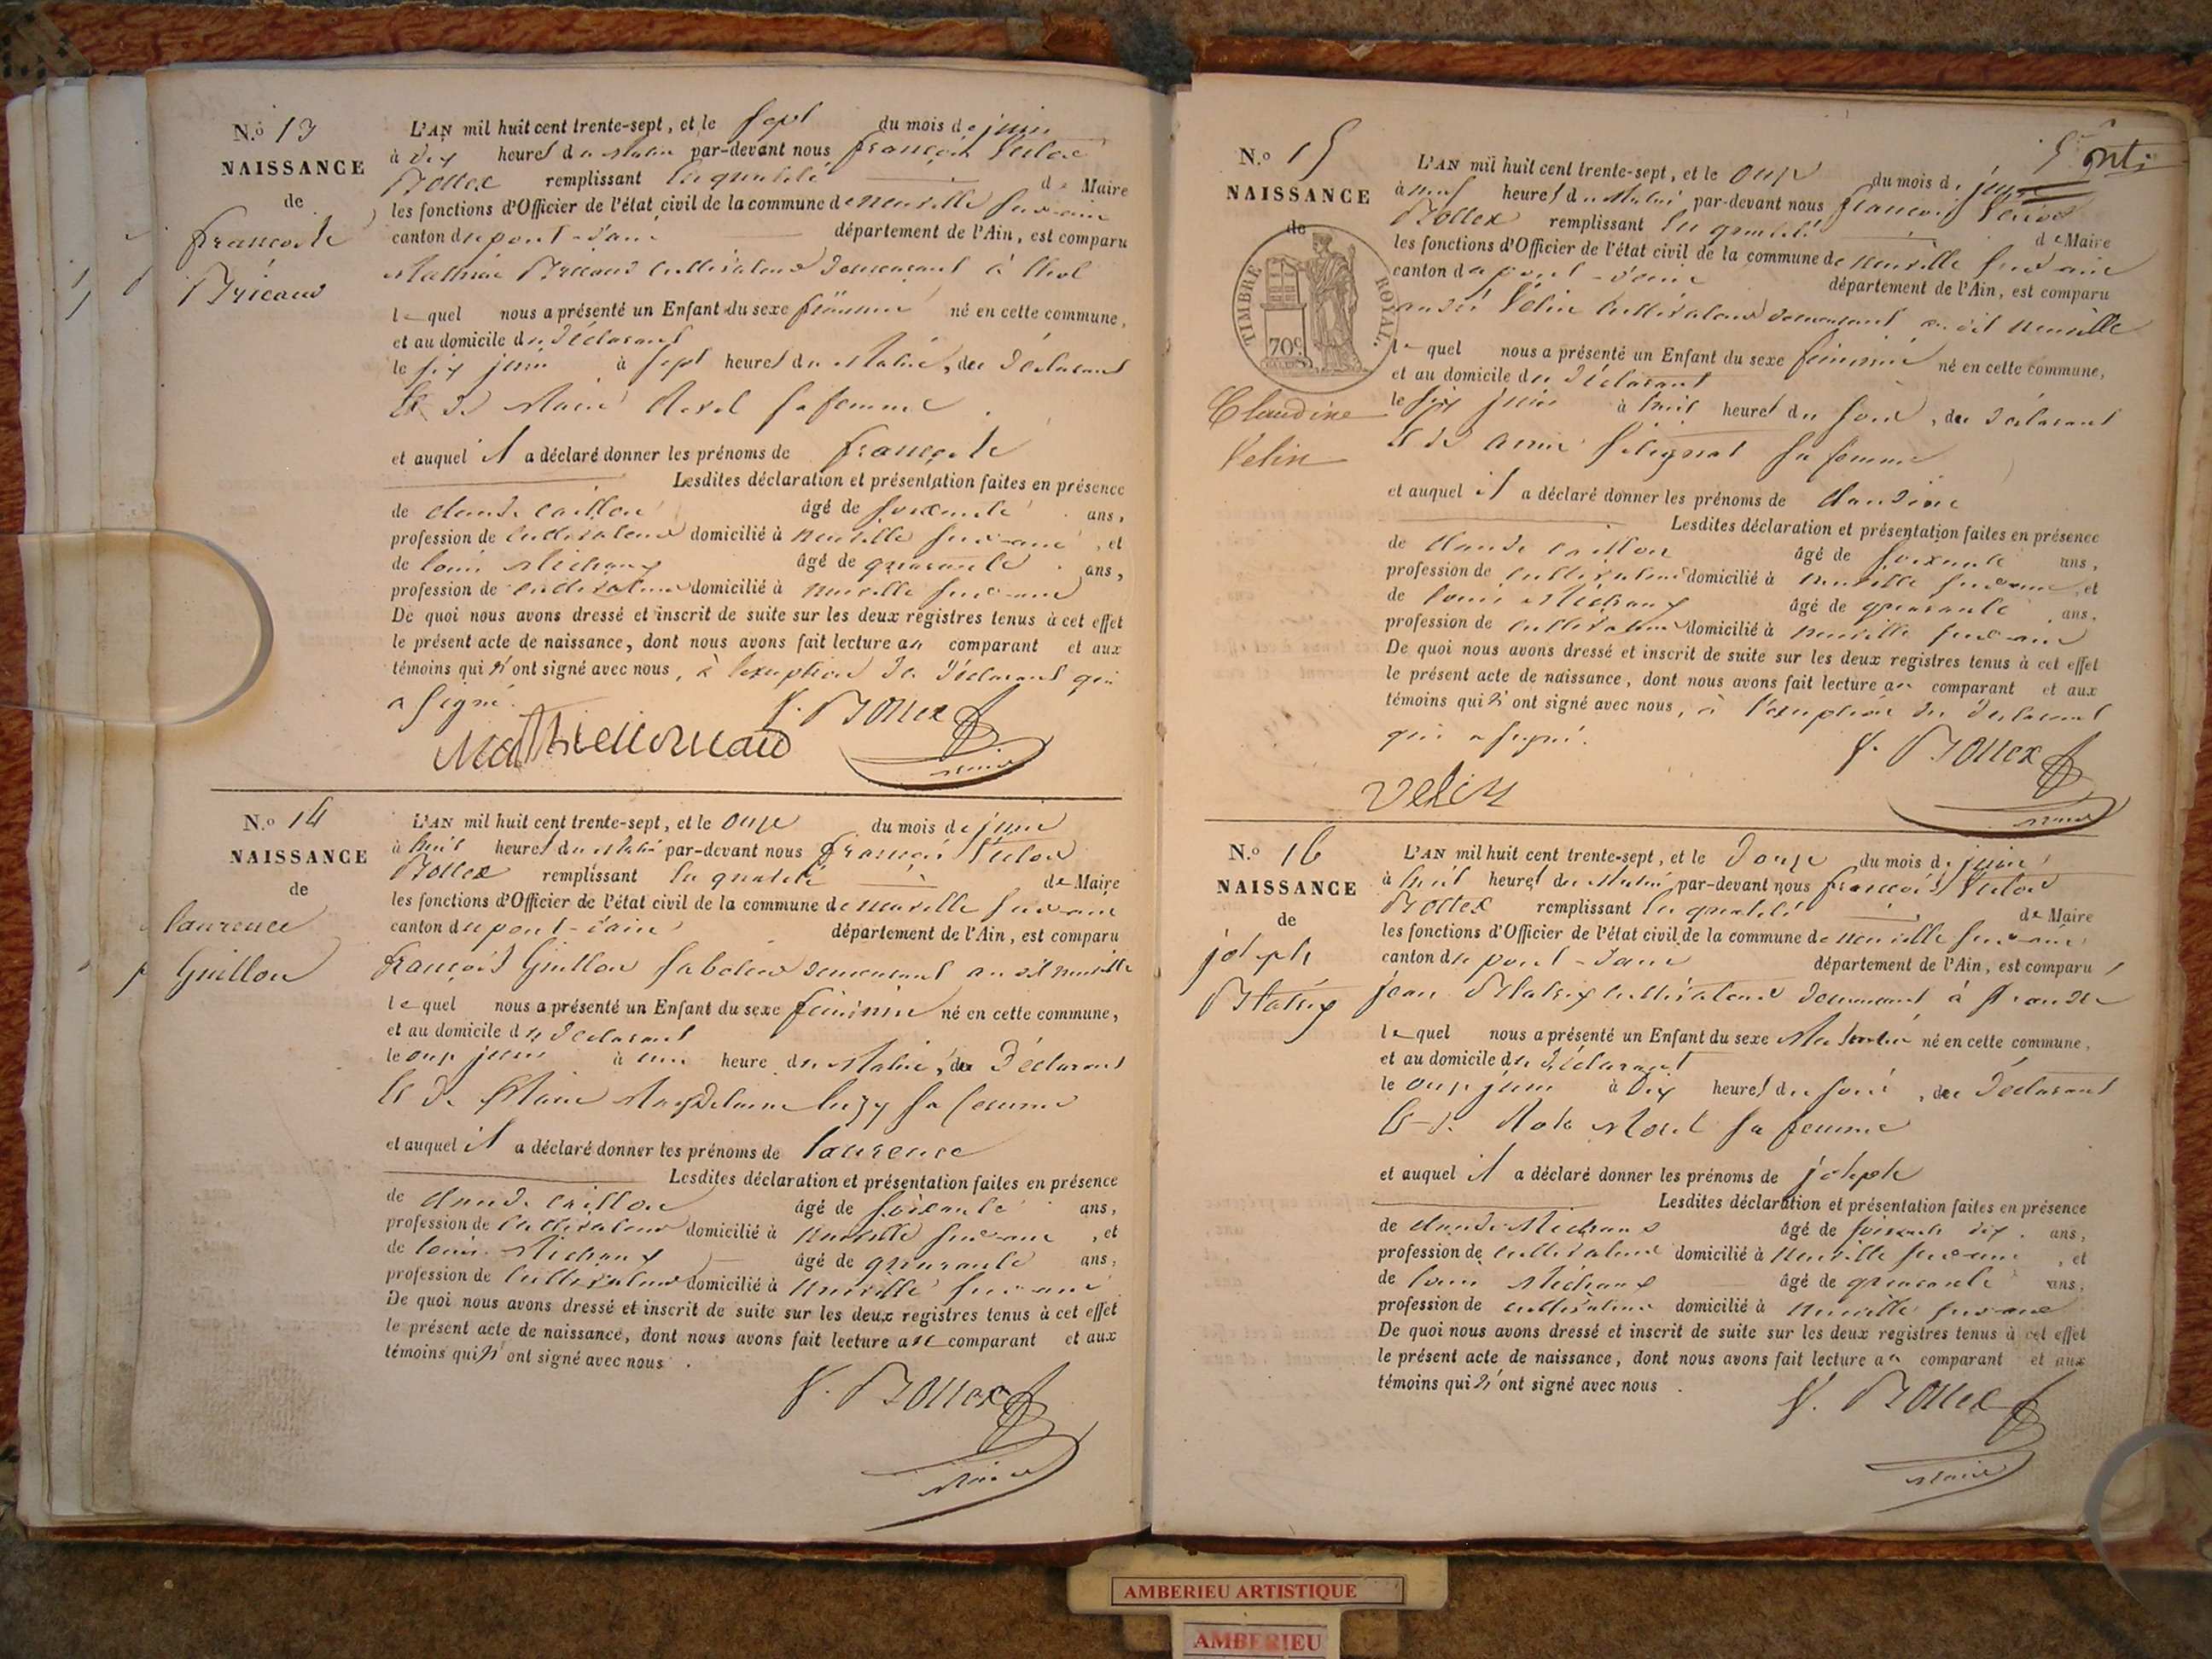 N.o 13
NAISSANCE
de
françoise
Bricaud
L'AN mil huit cent trente-sept, et le sept du mois de juin
à dix heures du Matin par-devant nous françois Victor
Bollex remplissant en qualité de Maire
les fonctions d'Officier de l'état civil de la commune de neuville sur ain
canton de pont-d'ain département de l'Ain, est comparu
Mathieu Bricaud cultivateur demeurant à
lequel nous a présenté un Enfant du sexe féminin né en cette commune,
et au domicile du déclarant
le six juin à sept heures du Matin, du déclarant
Et de Marie sa femme
et auquel il a déclaré donner les prénoms de françoise
Lesdites déclaration et présentation faites en présence
de claude caillon âgé de soixante ans,
profession de cultivateur domicilié à neuville sur ain, et
de louis Michaux âgé de quarante ans,
profession de cultivateur domicilié à neuville sur ain
De quoi nous avons dressé et inscrit de suite sur les deux registres tenus à cet effet
le présent acte de naissance, dont nous avons fait lecture au comparant et aux
témoins qui n'ont signé avec nous, à l'exception du déclarant qui
a signé.
V. Bollex
maire
N.o 14
NAISSANCE
de
laurence
Guillon
L'AN mil huit cent trente-sept, et le onze du mois de juin
à huit heures du Matin par-devant nous françois Victor
Bollex remplissant en qualité de Maire
les fonctions d'Officier de l'état civil de la commune de neuville sur ain
canton de pont-d'ain département de l'Ain, est comparu
françois Guillon sabotier demeurant au dit neuville
lequel nous a présenté un Enfant du sexe féminin né en cette commune,
et au domicile du déclarant
le onze juin à une heure du Matin, du déclarant
Et de Marie Magdelaine sa femme
et auquel il a déclaré donner les prénoms de laurence
Lesdites déclaration et présentation faites en présence
de claude caillon âgé de soixante ans,
profession de cultivateur domicilié à neuville sur ain, et
de louis Michaux âgé de quarante ans,
profession de cultivateur domicilié à neuville sur ain
De quoi nous avons dressé et inscrit de suite sur les deux registres tenus à cet effet
le présent acte de naissance, dont nous avons fait lecture au comparant et aux
témoins qui n'ont signé avec nous.
V. Bollex
Maire
N.o 15
NAISSANCE
de
TIMBRE ROYAL.
70c
Claudine
Velin
L'AN mil huit cent trente-sept, et le onze du mois de juin
à neuf heures du Matin par-devant nous françois Victor
Bollex remplissant en qualité de Maire
les fonctions d'Officier de l'état civil de la commune de neuville sur ain
canton de pont-d'ain département de l'Ain, est comparu
andré Velin cultivateur demeurant au dit neuville
lequel nous a présenté un Enfant du sexe féminin né en cette commune,
et au domicile du déclarant
le six juin à huit heures du soir, du déclarant
Et de anne sa femme
et auquel il a déclaré donner les prénoms de claudine
Lesdites déclaration et présentation faites en présence
de claude caillon âgé de soixante ans,
profession de cultivateur domicilié à neuville sur ain, et
de louis Michaux âgé de quarante ans,
profession de cultivateur domicilié à neuville sur ain
De quoi nous avons dressé et inscrit de suite sur les deux registres tenus à cet effet
le présent acte de naissance, dont nous avons fait lecture au comparant et aux
témoins qui n'ont signé avec nous, à l'exception du déclarant
qui a signé.
V. Bollex
velin
maire
N.o 16
NAISSANCE
de
joseph
L'AN mil huit cent trente-sept, et le douze du mois de juin
à huit heures du Matin par-devant nous françois Victor
Bollex remplissant en qualité de Maire
les fonctions d'Officier de l'état civil de la commune de neuville sur ain
canton de pont-d'ain département de l'Ain, est comparu
jean cultivateur demeurant à
lequel nous a présenté un Enfant du sexe Masculin né en cette commune,
et au domicile du déclarant
le onze juin à dix heures du soir, du déclarant
Et de sa femme
et auquel il a déclaré donner les prénoms de joseph
Lesdites déclaration et présentation faites en présence
de claude Michaud âgé de soixante dix ans,
profession de cultivateur domicilié à neuville sur ain, et
de louis Michaux âgé de quarante ans,
profession de cultivateur domicilié à neuville sur ain
De quoi nous avons dressé et inscrit de suite sur les deux registres tenus à cet effet
le présent acte de naissance, dont nous avons fait lecture au comparant et aux
témoins qui n'ont signé avec nous.
V. Bollex
Maire
AMBERIEU ARTISTIQUE
AMBERIEU